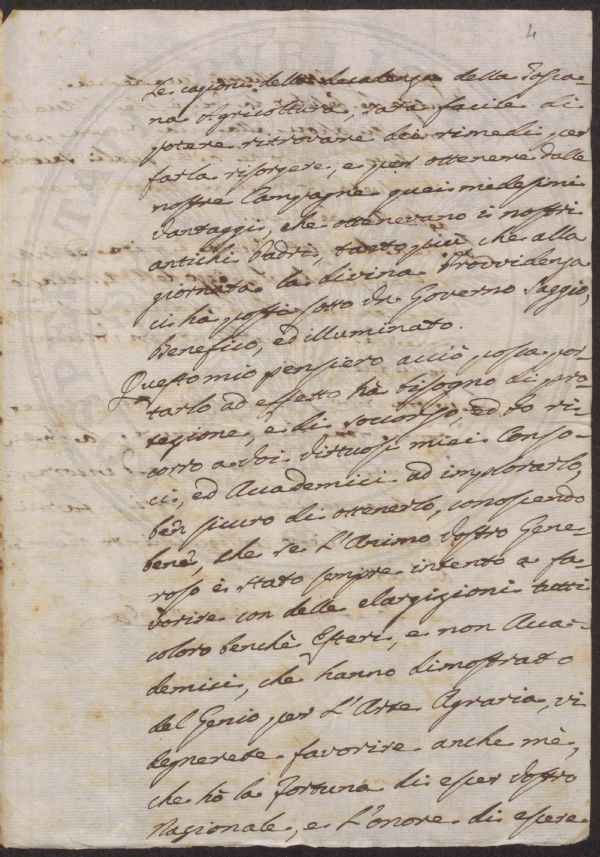 4
le cagioni della decadenza della Tosca-
na Agricoltura, sarà facile di
potere ritrovare dei rimedi per
farla risorgere, e per ottenere dalle
nostre Campagne quei medesimi
vantaggi, che ottenevano i nostri
antichi Padri, tanto più che alla
giornata la divina Provvidenza
ci hà posti sotto un Governo saggio,
Benefico, ed illuminato.
Questo mio pensiero acciò possa por-
tarlo ad effetto hà bisogno di pro-
tezione, e di soccorso, ed io ri-
corro a Voi Virtuosi miei Conso-
ci, ed Accademici ad implorarlo,
ben sicuro di ottenerlo, conoscendo
bene, che se L'Animo Vostro Gene-
roso è stato sempre intento a fa-
vorire con delle elargizioni tutti
coloro benchè Esteri, e non Acca-
demici, che hanno dimostrato
del Genio per L'Arte Agraria, vi
degnerete favorire anche mè,
che hò la Fortuna di esser Vostro
Nazionale, e L'onore di essere